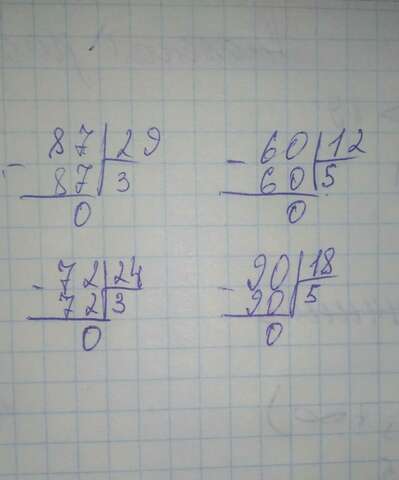 87 29 60 12
- 87 3 - 60 5
0 0
72 24 90 18
- 72 3 - 90 5
0 0